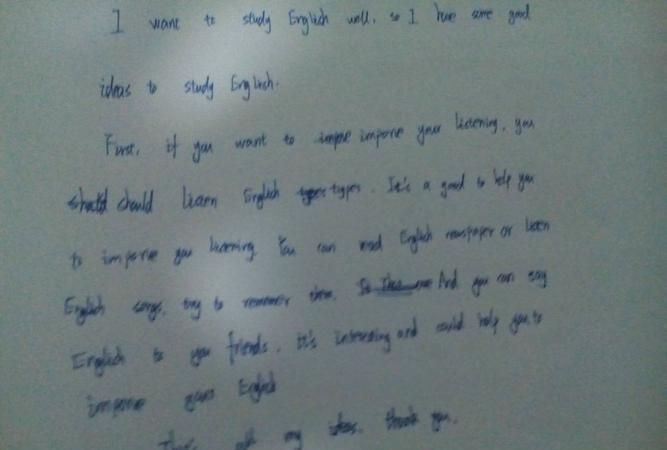 I want to study English well, so I have some good
ideas to study English.
First, if you want to imporve your listening, you
should learn English types. It's a good to help you
to imporve you listening. You can read English newspaper or listen
English songs, try to remember them. And you can say
English to you friends, it's interesting and could help you to
imporve your English
my ideas. thank you.